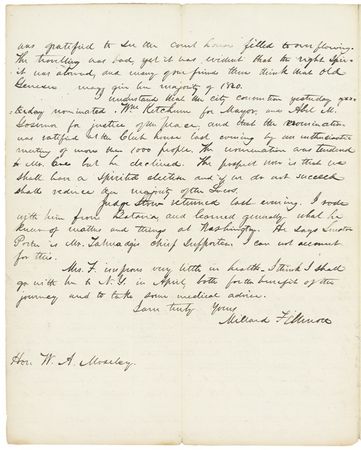 was gratified to see the court house filled to overflowing.
The travelling was bad, yet it was evident that the right spir-
it was abroad, and many of our friends there think that Old
Genesee may give her majority of 1840.
I understand that the city convention yesterday
nominated Wm Ketchum for Mayor, and Abel M.
for justice of the peace, and that the nomination
was ratified at the Club house last evening by an enthusiastic
meeting of more than 1000 people. The nomination was tendered
to Mr. but he declined. The prospect now is that we
shall have a spirited election and if we do not succeed
shall reduce the majority of the Locos.
Judge Stow returned last evening. I rode
with him from Batavia, and learned generally what he
knew of matters and things at Washington. He says Senator
Porter is Mr. Talmadge's chief supporter. I can not account
for this.
Mrs. F. improves very little in health. I think I shall
go with her to N.Y. in April, both for the benefit of the
journey and to take some medical advice.
I am truly Yours
Millard Fillmore
Hon. W. A. Moseley.